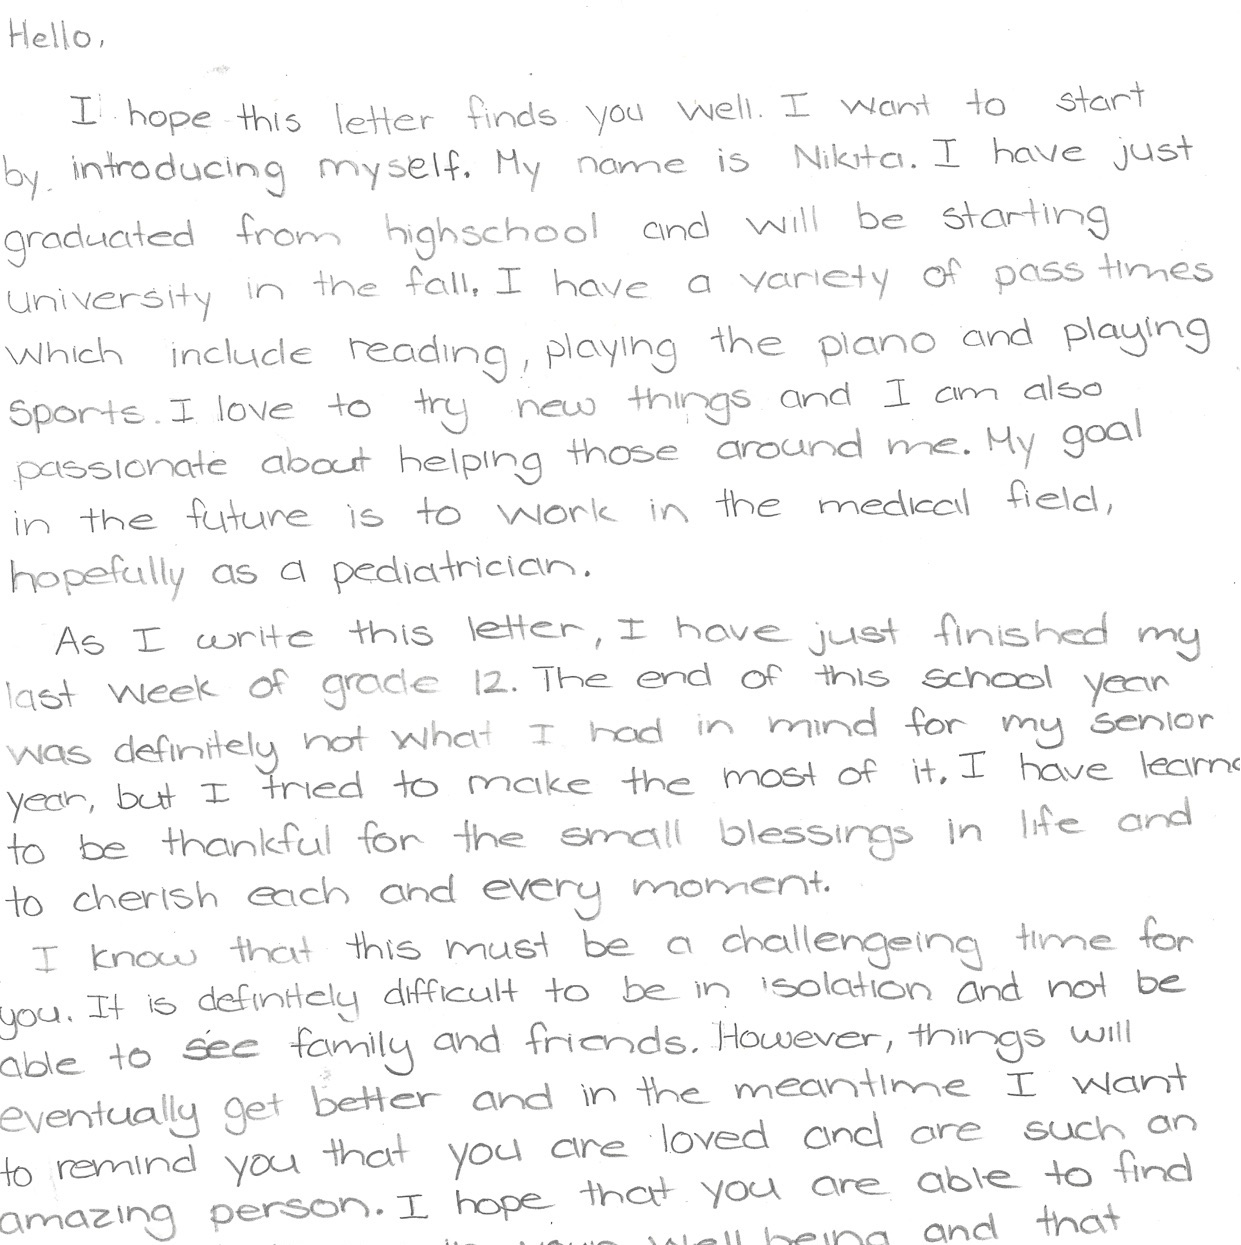 Hello,
I hope this letter finds you well. I want to start
by introducing myself. My name is Nikita. I have just
graduated from highschool and will be starting
university in the fall. I have a variety of pass times
which include reading, playing the piano and playing
sports. I love to try new things and I am also
passionate about helping those around me. My goal
in the future is to work in the medical field,
hopefully as a pediatrician.
As I write this letter, I have just finished my
last week of grade 12. The end of this school year
was definitely not what I had in mind for my senior
year, but I tried to make the most of it. I have
to be thankful for the small blessings in life and
to cherish each and every moment.
I know that this must be a challengeing time for
you. It is definitely difficult to be in isolation and not be
able to see family and friends. However, things will
eventually get better and in the meantime I want
to remind you that you are loved and are such an
amazing person. I hope that you are able to find
well being and that